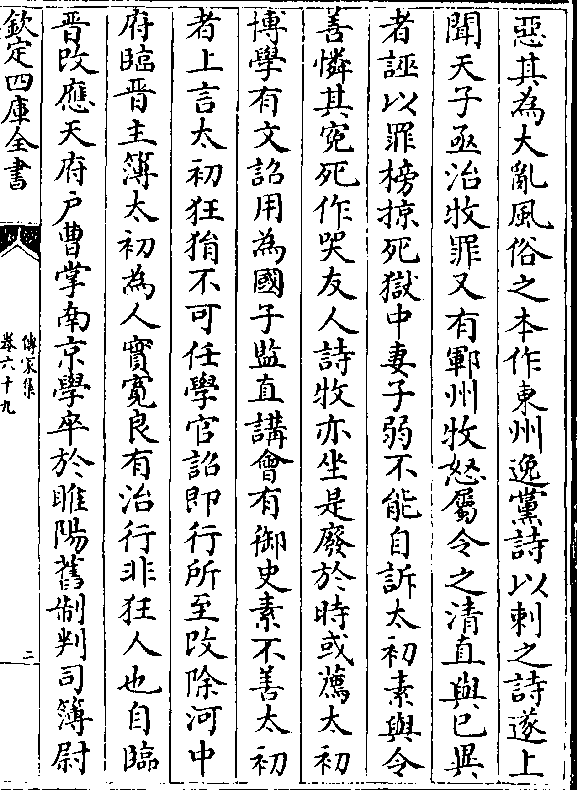 惡其為大亂風俗之本作東州逸黨詩以刺之詩遂上
聞天子亟治牧罪又有鄆州牧怒屬令之清直與已異
者誣以罪榜掠死獄中妻子弱不能自訴太初素與令
善憐其寃死作哭友人詩牧亦坐是廢於時或薦太初
博學有文詔用為國子監直講會有御史素不善太初
者上言太初狂狷不可任學官詔即行所至改除河中
府臨晉主簿太初為人實寛良有治行非狂人也自臨
晉改應天府户曹掌南京學卒於睢陽舊制判司簿尉
欽定四庫全書
傳家集
卷六十九
二